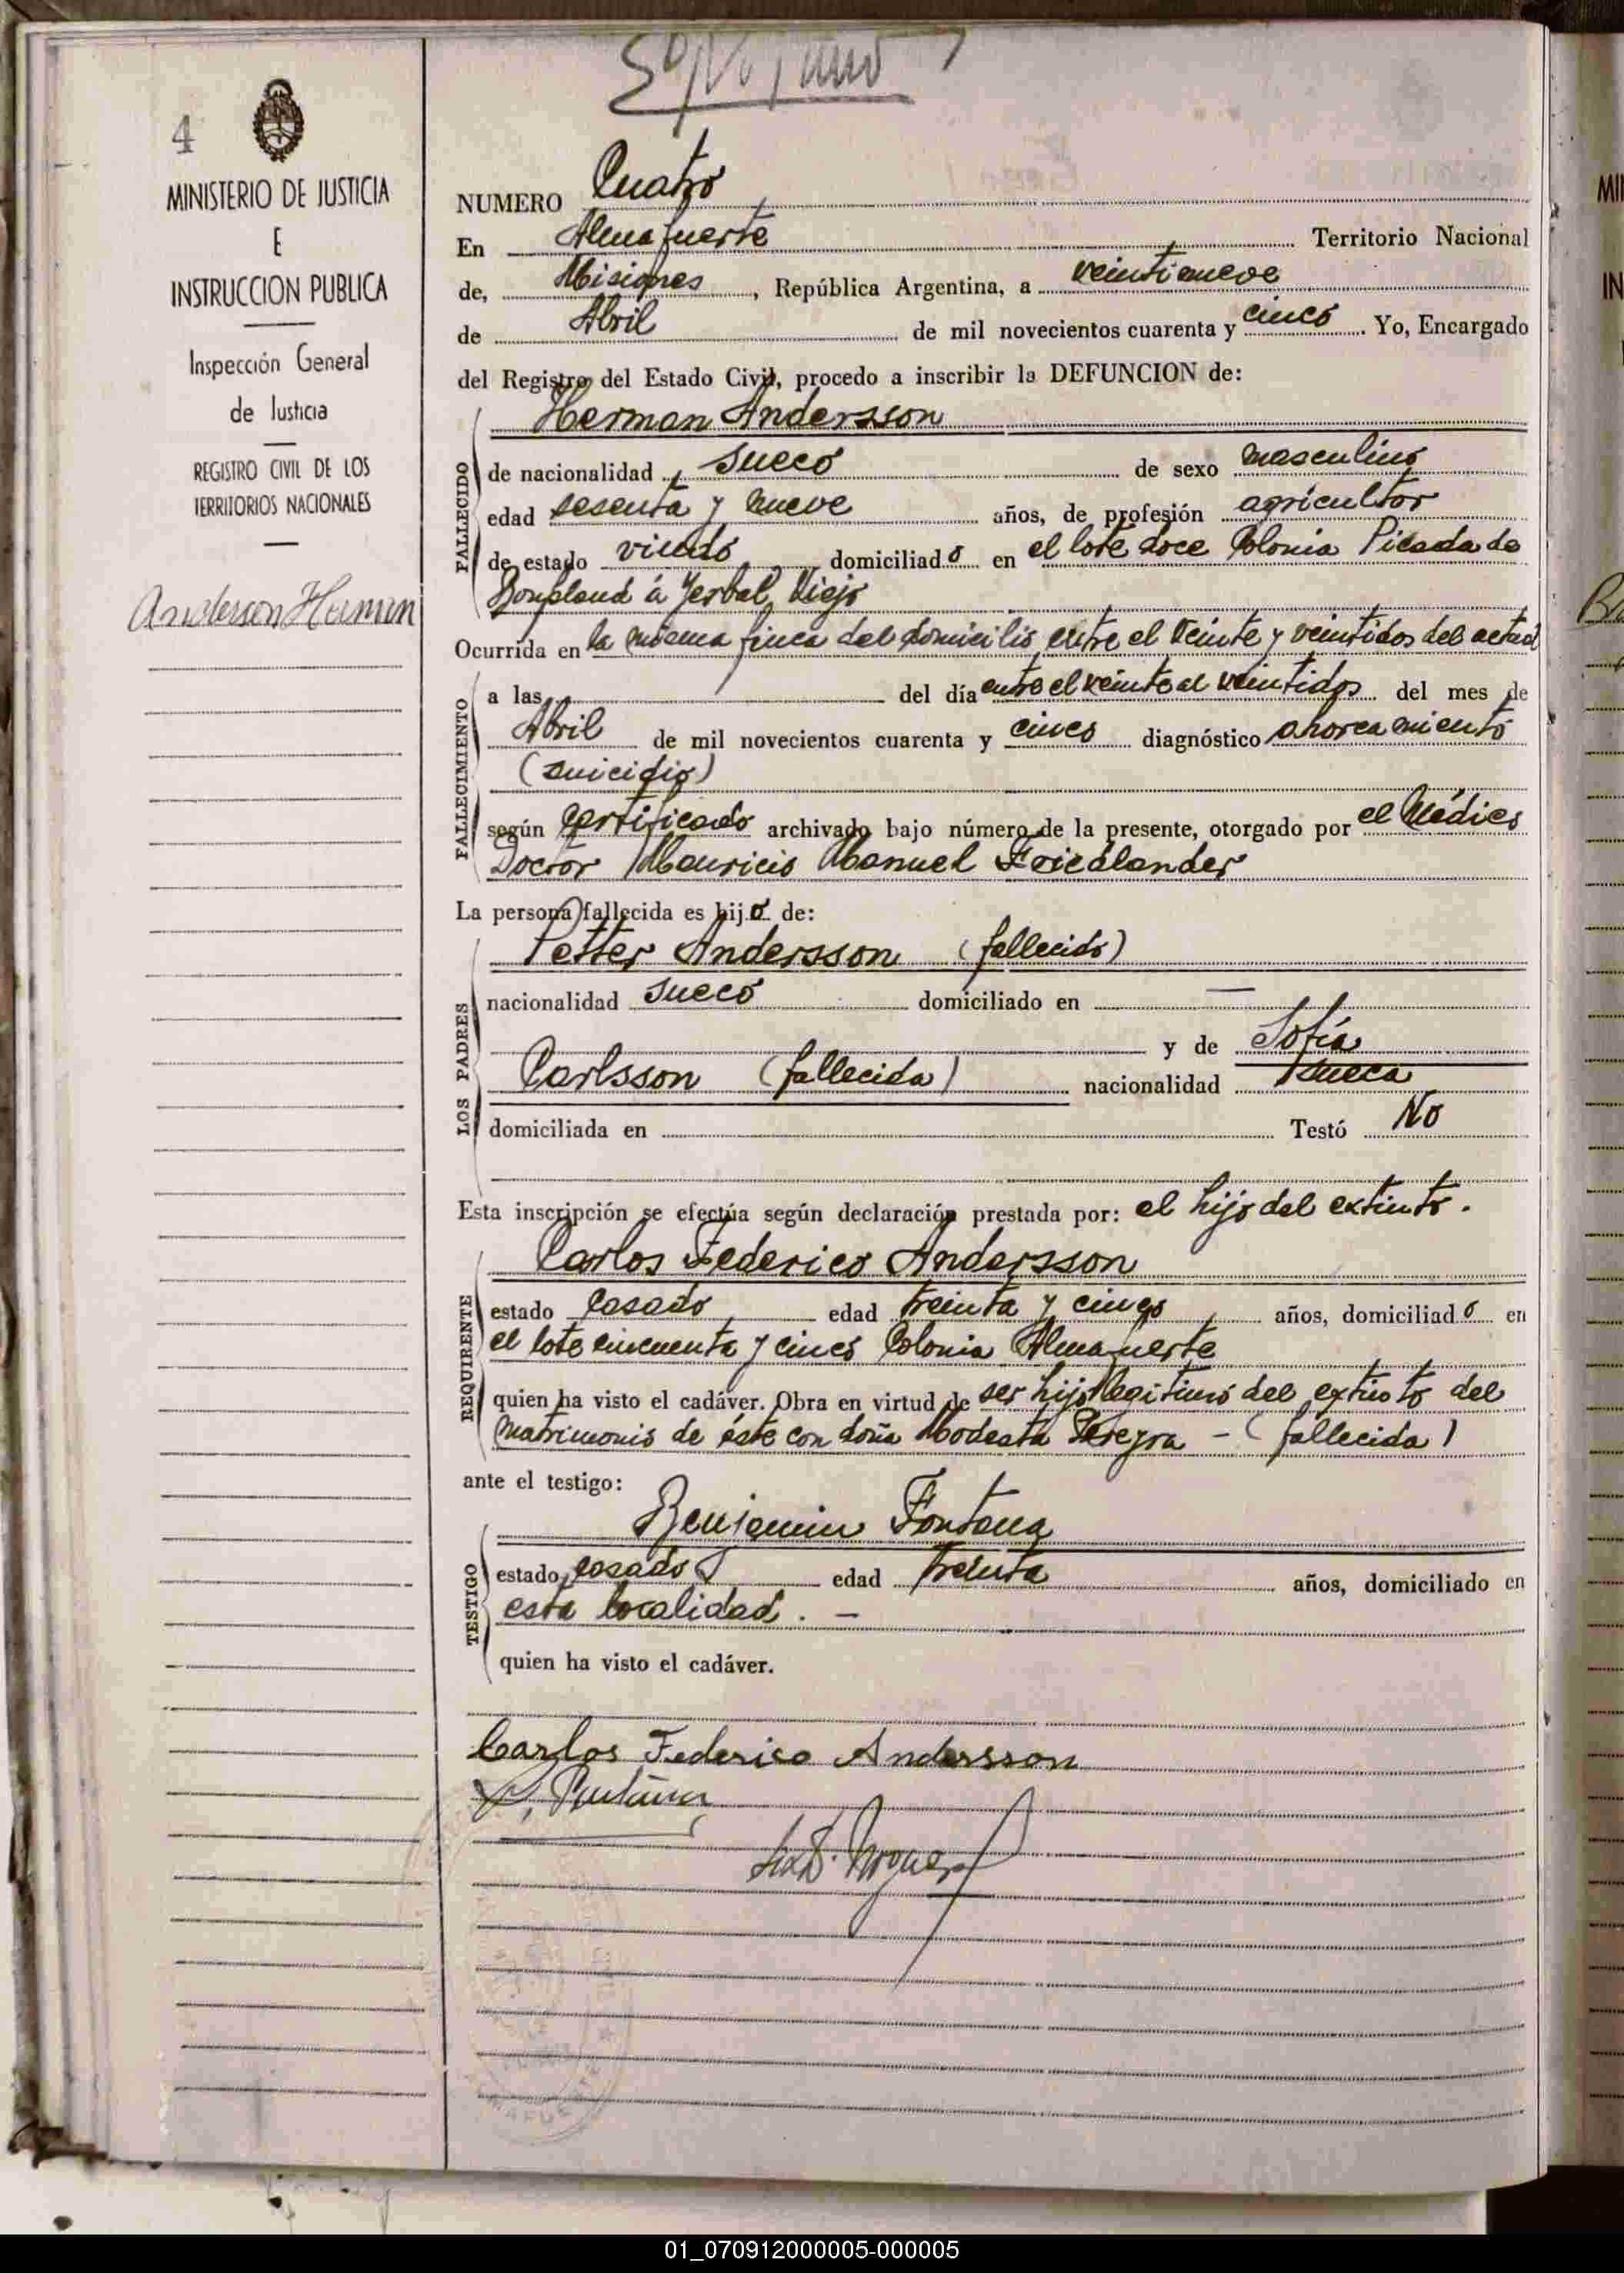 4
MINISTERIO DE JUSTICIA
E
INSTRUCCION PUBLICA
Inspección General
de Justicia
REGISTRO CIVIL DE LOS
TERRITORIOS NACIONALES
Anderson Herman
NUMERO Cuatro
En Almafuerte Territorio Nacional
de, Misiones, República Argentina, a veintinueve
de Abril de mil novecientos cuarenta y cinco. Yo, Encargado
del Registro del Estado Civil, procedo a inscribir la DEFUNCION de:
Herman Andersson
FALLECIDO
de nacionalidad sueco de sexo masculino
edad sesenta y nueve años, de profesión agricultor
de estado viudo domiciliado en el lote doce Colonia Picada de
Bonpland á Yerbal Viejo
Ocurrida en la misma finca del domicilio, entre el veinte y veintidos del actual
FALLECIMIENTO
a las del día entre el veinte al veintidos del mes de
Abril de mil novecientos cuarenta y cinco diagnóstico ahorcamiento
(suicidio)
según certificado archivado bajo número de la presente, otorgado por el Médico
Doctor Mauricio Manuel Friedlander
La persona fallecida es hijo de:
LOS PADRES
Petter Andersson (fallecido)
nacionalidad sueco domiciliado en —
y de Sofía
Carlsson (fallecida) nacionalidad sueca
domiciliada en Testó No
Esta inscripción se efectúa según declaración prestada por: el hijo del extinto.
REQUIRENTE
Carlos Federico Andersson
estado casado edad treinta y cinco años, domiciliado en
el lote cincuenta y cinco Colonia Almafuerte
quien ha visto el cadáver. Obra en virtud de ser hijo legitimo del extinto del
matrimonio de éste con doña Modesta Pereyra - (fallecida)
ante el testigo:
TESTIGO
Benjamin Fontana
estado casado edad treinta años, domiciliado en
esta localidad. -
quien ha visto el cadáver.
Carlos Federico Andersson
01_070912000005-000005